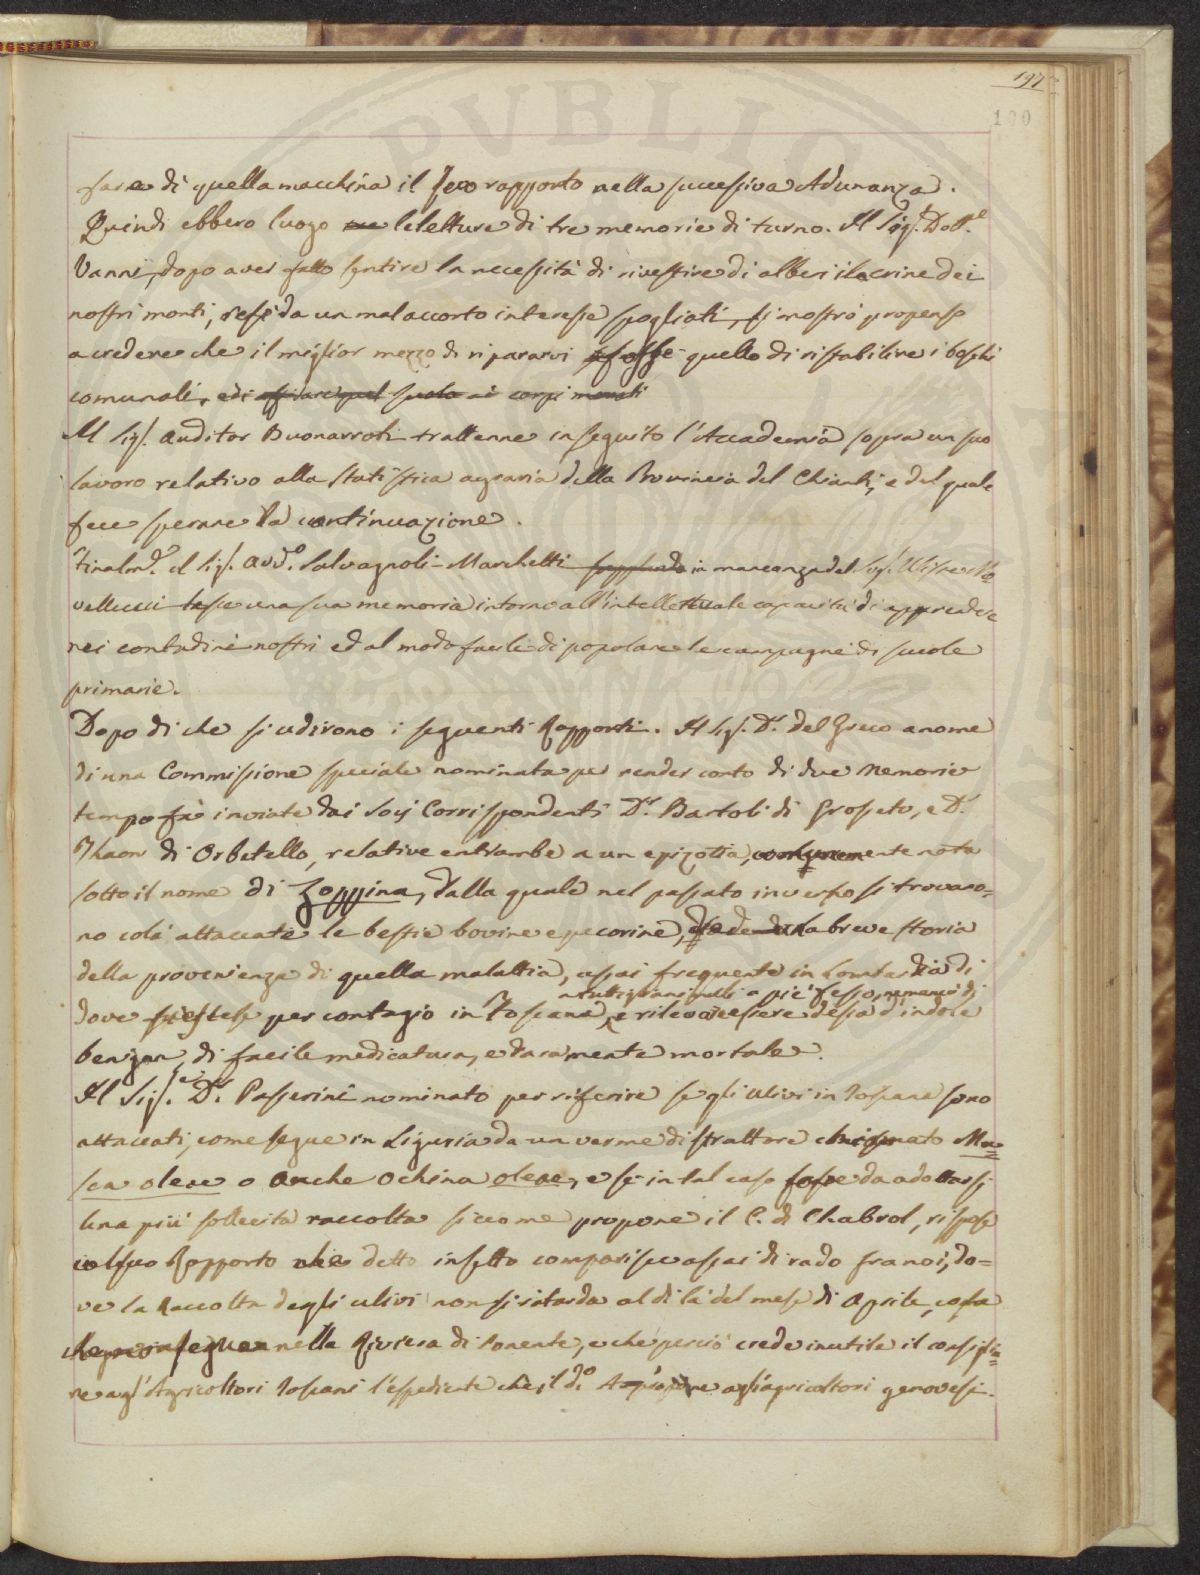 197
100
fare di quella macchina il suo rapporto nella successiva Adunanza.
Quindi ebbero luogo le letture di tre memorie di turno. Il Sig.r Dott.e
Vanni, dopo aver fatto sentire la necessità di rivestire di alberi il crine dei
nostri monti, resi da un malaccorto interesse spogliati, si mostrò propenso
a credere che il miglior mezzo di ripararvi fosse quello di ristabilire i boschi
comunali, ed i corpi morali
Il Sig. Auditor Buonarroti trattenne in seguito l'Accademia sopra un suo
lavoro relativo alla statistica agraria della Provincia del Chianti, e del quale
fece sperare la continuazione.
Finalm.e il Sig. Avv.o Salvagnoli-Marchetti in mancanza del Sig. Ulisse No=
vellucci lesse una sua memoria intorno all'intellettuale capacità di apprendere
nei contadini nostri ed al modo facile di popolare le campagne di scuole
primarie.
Dopo di che si udirono i seguenti Rapporti. Il Sig. D.r del Greco a nome
di una Commissione speciale nominata per render conto di due Memorie
tempo fà inviate dai Socj Corrispondenti D.r Bartoli di Grosseto, e D.r
Thaon di Orbetello, relative entrambe a un epizotia, comunemente nota
sotto il nome di Zoppina, dalla quale nel passato inverno si trovaro=
no colà attaccate le bestie bovine e pecorine, la breve storia
della provenienza di quella malattia, assai frequente in Lombardia di
a piè fesso, nemmeno di
dove si estese per contagio in Toscana, e rilevò essere dessa d'indole
benigna, di facile medicatura, e raramente mortale.
Il Sig. D.r Passerini nominato per riferire se gli ulivi in Toscana sono
attaccati, come segue in Liguria da un verme distruttore chiamato Mu=
sca oleae o anche Ochina oleae, e se in tal caso fosse da adottarsi
una più sollecita raccolta siccome propone il C. di Chabrol, rispose
col suo Rapporto che detto insetto comparisce assai di rado fra noi, do=
ve la Raccolta degli ulivi non si ritarda al di là del mese di Aprile, cosa
che non segue nella Riviera di Ponente, e che perciò crede inutile il consiglia=
re agl'Agricoltori Toscani l'espediente che, il d.o propone agli agricoltori genovesi.